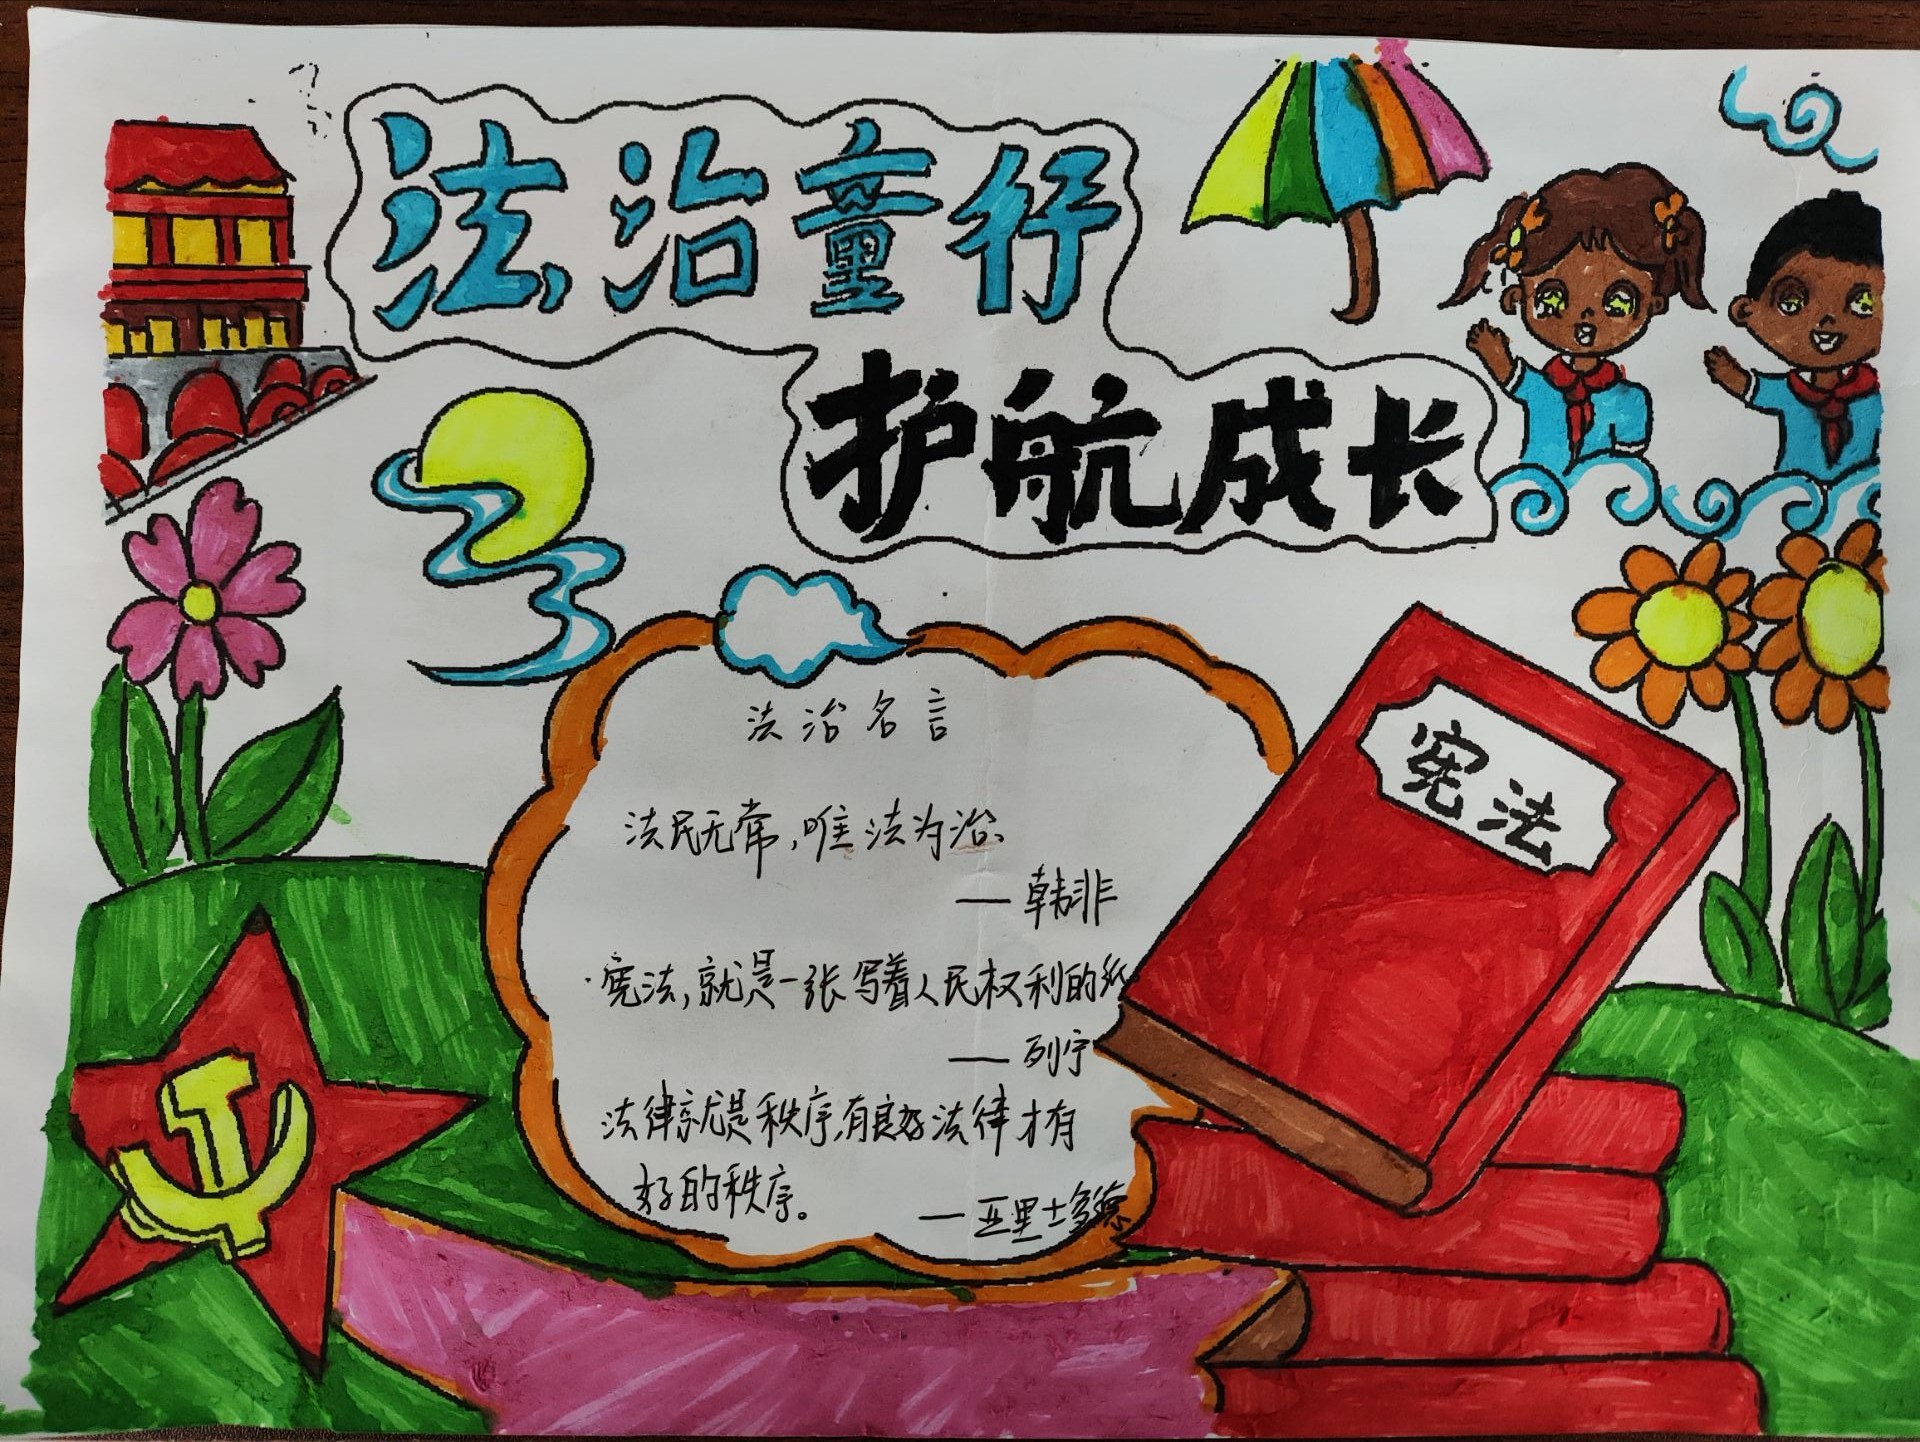 法治童行
护航成长
法治名言
法民无常，唯法为治、
— 韩非
宪法，就是一张写着人民权利的纸
— 列宁
法律就是秩序，有良好法律才有
好的秩序。
— 亚里士多德
宪法